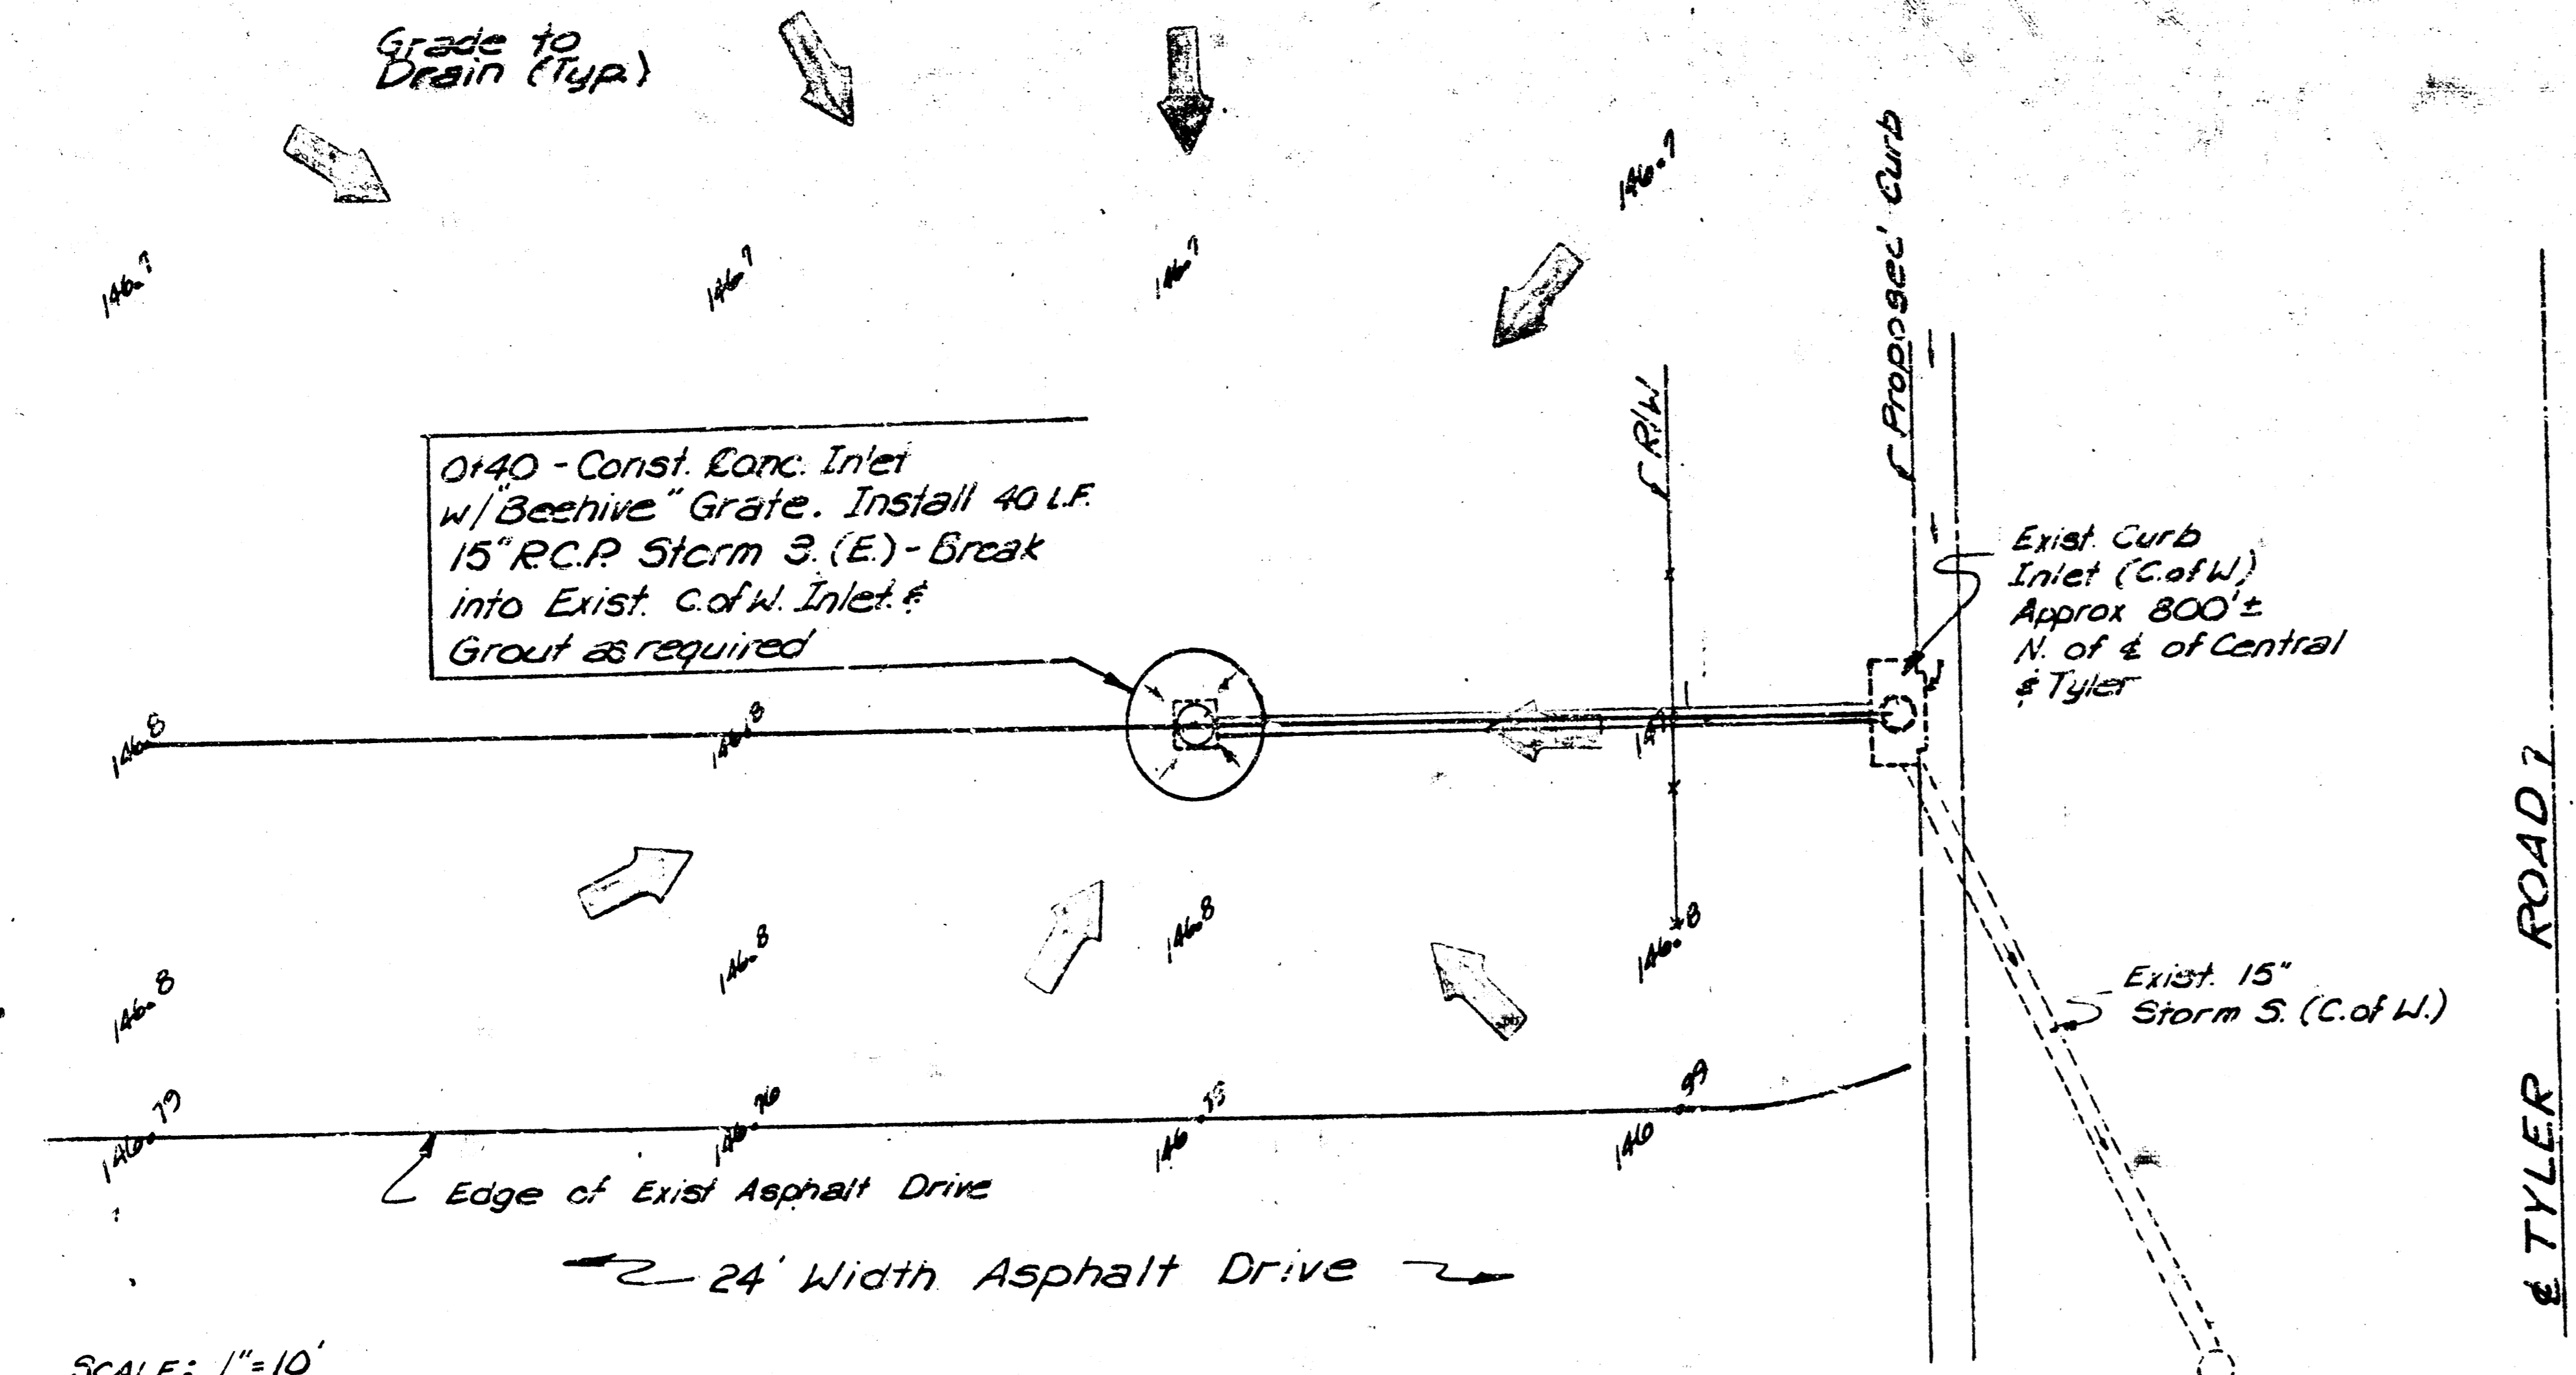 Grade to
Drain (Typ.)
146.7
146.7
146.7
146.7
Proposed Curb
R/W
0+40 - Const. Conc. Inlet
w/"Beehive" Grate. Install 40 L.F.
15" R.C.P. Storm S. (E.) - Break
into Exist. C.of W. Inlet &
Grout as required
Exist. Curb
Inlet (C.of W.)
Approx 800'±
N. of ℄ of Central
& Tyler
146.8
146.8
146.8
146.8
146.8
146.8
Exist. 15"
Storm S. (C.of W.)
℄ TYLER ROAD
146.79
146.76
Edge of Exist Asphalt Drive
24' Width Asphalt Drive
SCALE: 1"=10'